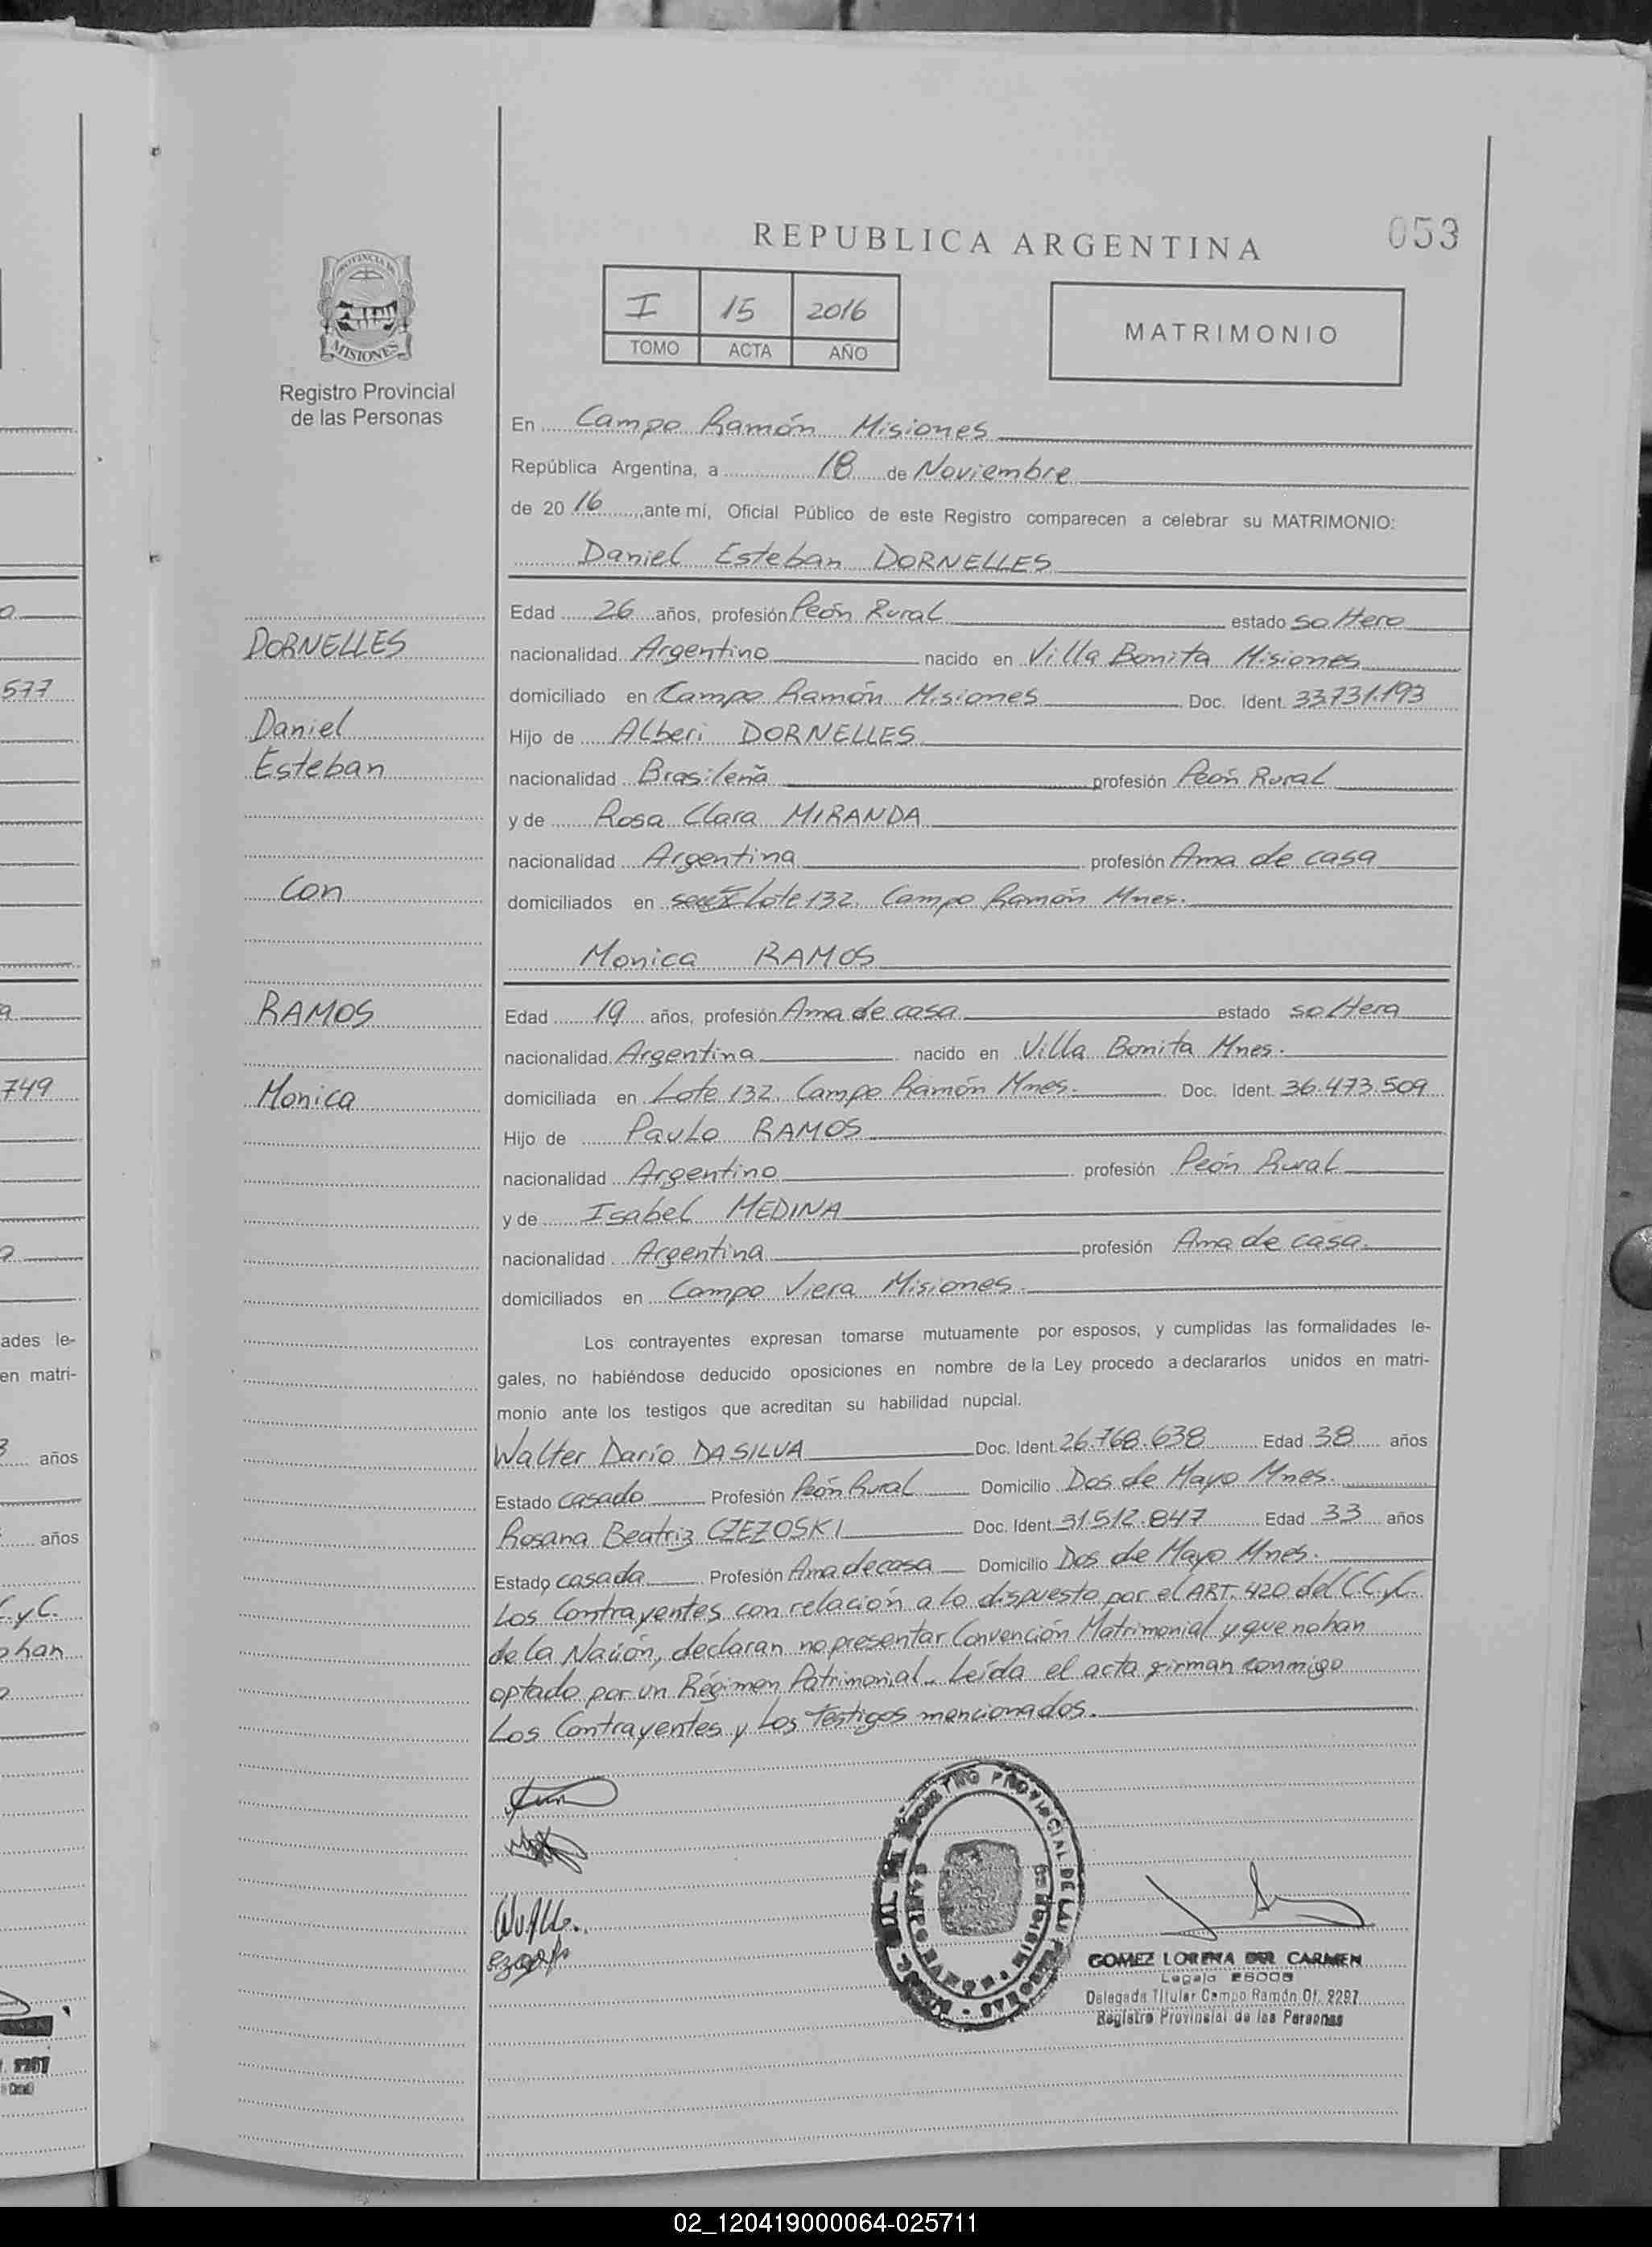 053
REPUBLICA ARGENTINA
PROVINCIA DE
MISIONES
Registro Provincial
de las Personas
I 15 2016
TOMO ACTA AÑO
MATRIMONIO
En Campo Ramón Misiones
República Argentina, a 18 de Noviembre
de 20 16 ,ante mí, Oficial Público de este Registro comparecen a celebrar su MATRIMONIO:
Daniel Esteban DORNELLES
Edad 26 años, profesión Peón Rural estado soltero
DORNELLES
nacionalidad Argentino nacido en Villa Bonita Misiones
577
domiciliado en Campo Ramón Misiones Doc. Ident. 33.731.193
Daniel
Hijo de Alberi DORNELLES
Esteban
nacionalidad Brasileña profesión Peón Rural
y de Rosa Clara MIRANDA
nacionalidad Argentina profesión Ama de casa
con
domiciliados en Lote 132. Campo Ramón Mnes.
Monica RAMOS
RAMOS
Edad 19 años, profesión Ama de casa estado soltera
nacionalidad Argentina nacido en Villa Bonita Mnes.
749
Monica
domiciliada en Lote 132. Campo Ramón Mnes. Doc. Ident. 36.473.509
Hijo de Paulo RAMOS
nacionalidad Argentino profesión Peón Rural
y de Isabel MEDINA
nacionalidad Argentina profesión Ama de casa.
domiciliados en Campo Viera Misiones.
Los contrayentes expresan tomarse mutuamente por esposos, y cumplidas las formalidades le-
gales, no habiéndose deducido oposiciones en nombre de la Ley procedo a declararlos unidos en matri-
monio ante los testigos que acreditan su habilidad nupcial.
ades le-
en matri-
años
años
C.y C.
han
Walter Darío DA SILVA Doc. Ident. 26.768.638 Edad 38 años
Estado casado Profesión Peón Rural Domicilio Dos de Mayo Mnes.
Rosana Beatriz CZEZOSKI Doc. Ident. 31512.847 Edad 33 años
Estado casada Profesión Ama de casa Domicilio Dos de Mayo Mnes.
Los Contrayentes con relación a lo dispuesto por el ART. 420 del C.C.y C.
de la Nación, declaran no presentar Convención Matrimonial y que no han
optado por un Régimen Patrimonial. Leída el acta firman conmigo
Los Contrayentes y Los Testigos mencionados.
REGISTRO PROVINCIAL DE LAS PERSONAS
CAMPO RAMON - MISIONES
GOMEZ LORENA DEL CARMEN
Delegada Titular Campo Ramón Of. 2207
Registro Provincial de las Personas
02_120419000064-025711